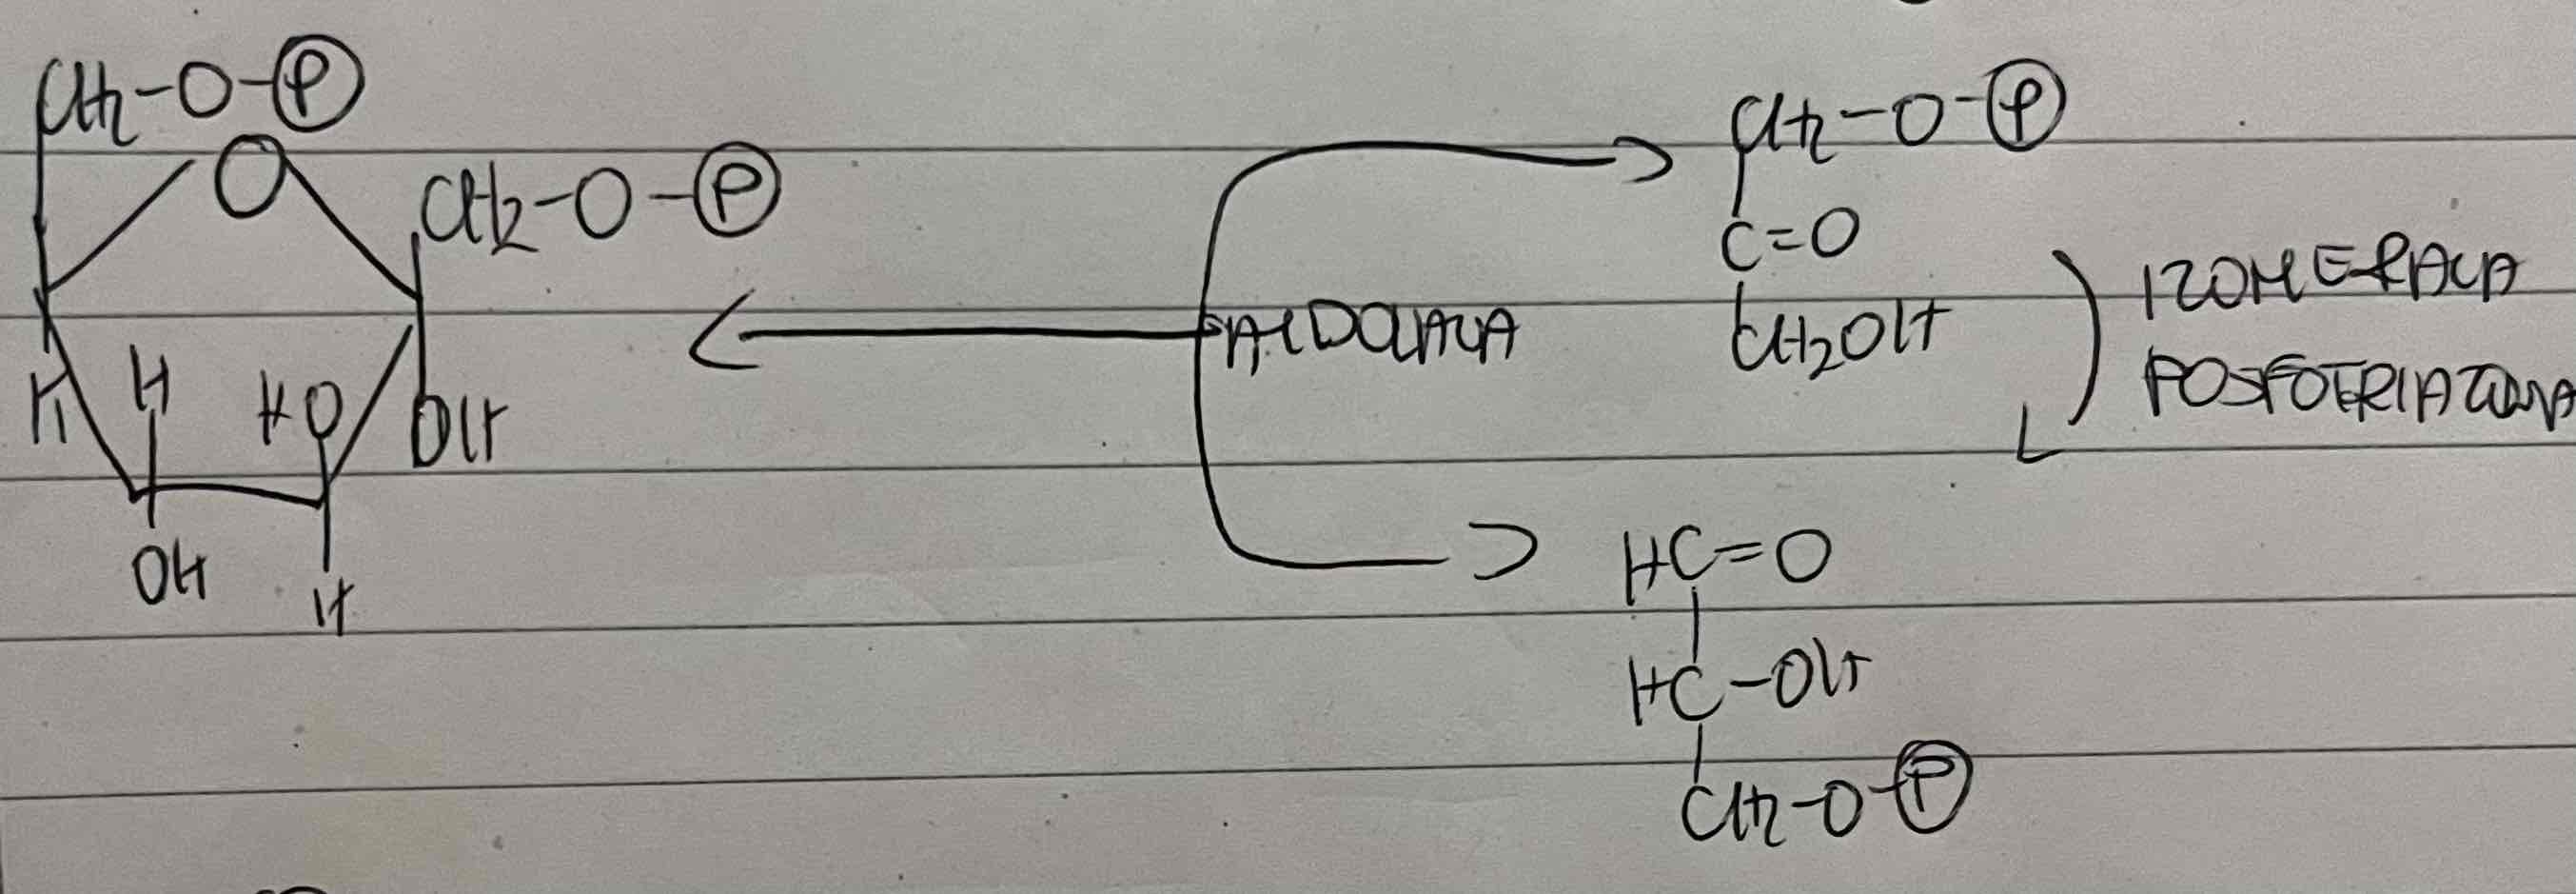 CH2-O-P
O
CH2-O-P
H
H
HO
OH
OH
H
ALDOLAZA
CH2-O-P
C=O
CH2OH
IZOMERAZA
HC=O
HC-OH
CH2-O-P